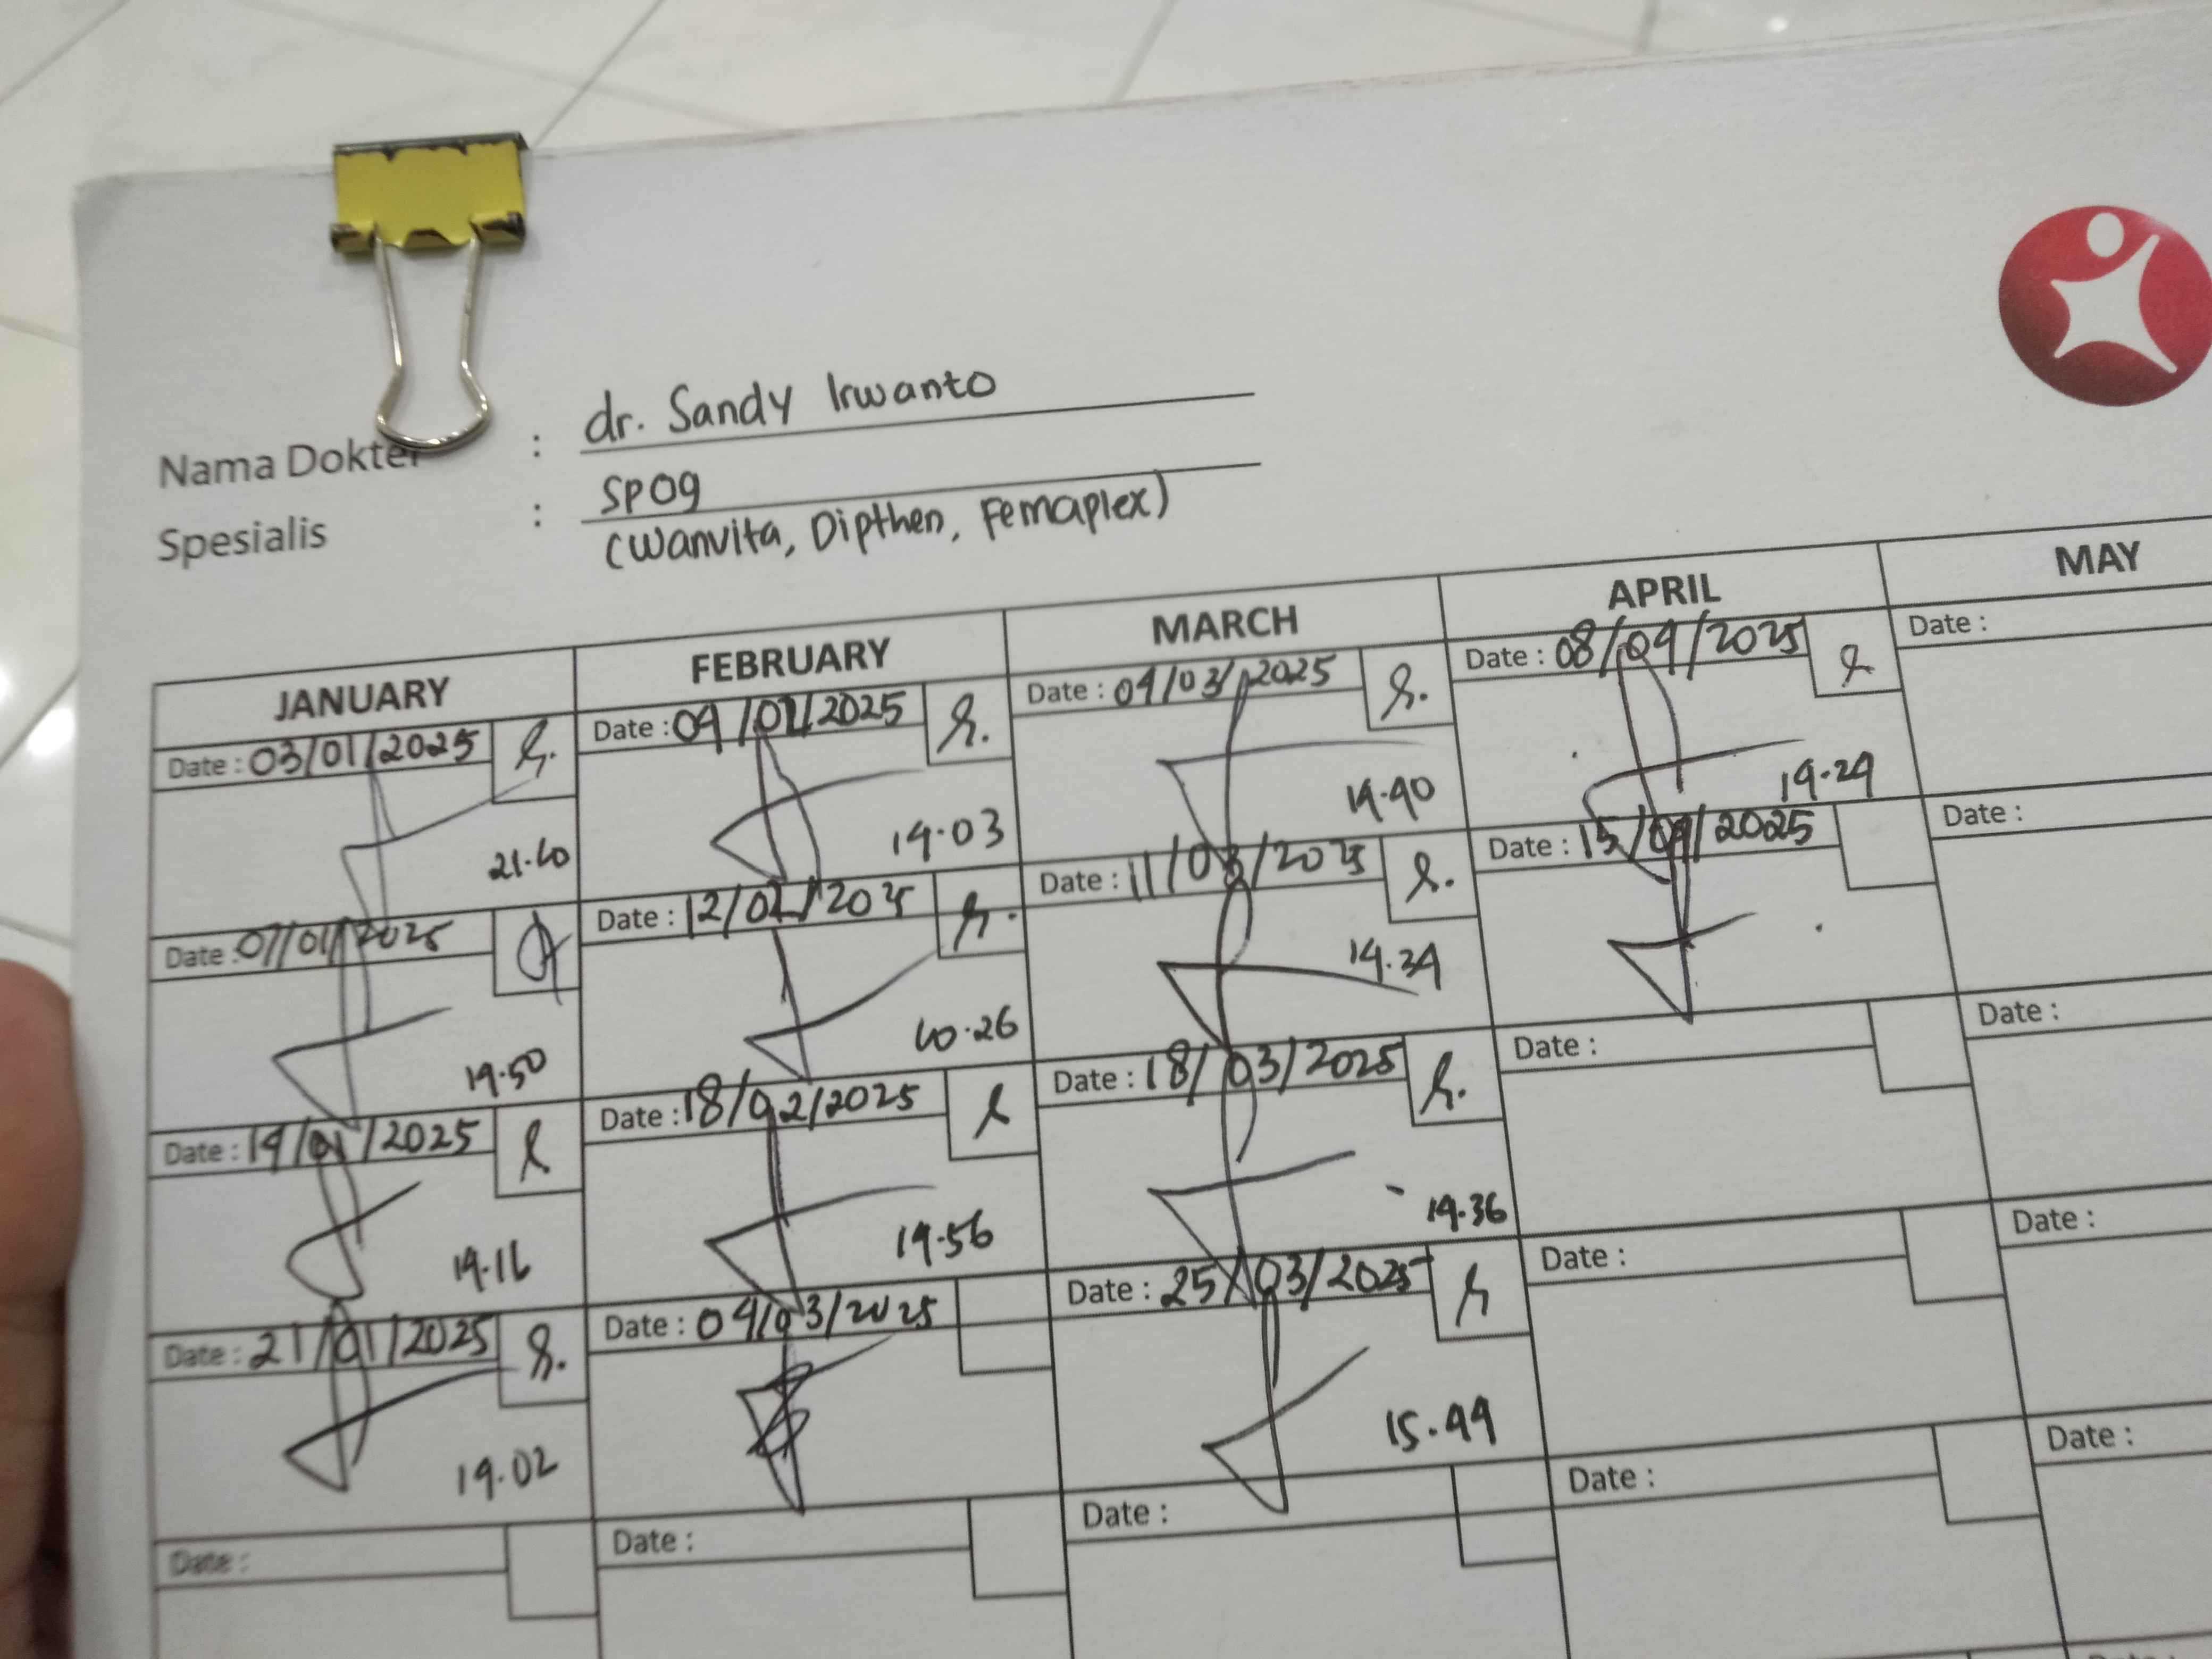 Nama Dokter : dr. Sandy Irwanto
Spesialis : SPOG
(Wanvita, Dipthen, Femaplex)
JANUARY FEBRUARY MARCH APRIL MAY
Date : 03/01/2025 Date : 04/02/2025 Date : 04/03/2025 Date : 08/04/2025 Date :
21.40 19.03 19.40 19.24
Date : 07/01/2025 Date : 12/02/2025 Date : 11/03/2025 Date : 15/04/2025 Date :
19.50 10.26 19.34
Date : 14/01/2025 Date : 18/02/2025 Date : 18/03/2025 Date : Date :
19.16 19.56 19.36
Date : 21/01/2025 Date : 04/03/2025 Date : 25/03/2025 Date : Date :
19.02 15.44
Date : Date : Date : Date : Date :